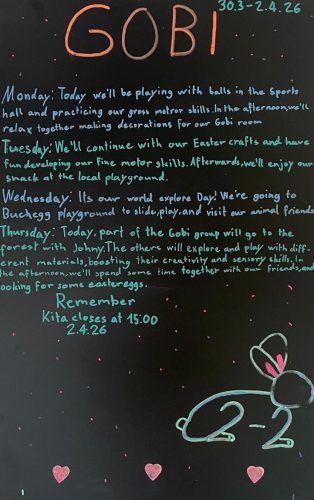 30.3-2.4.26
GOBI
Monday: Today we'll be playing with balls in the Sports
hall and practicing our gross motror skills. In the afternoon, we'll
relax together making decorations for our Gobi room
Tuesday: We'll continue with our Easter crafts and have
fun developing our fine motor skills. Afterwards, we'll enjoy our
snack at the local playground.
Wednesday: Its our world explore Day! We're going to
Buchegg playground to slide, play, and visit our animal friends
Thursday: Today, part of the Gobi group will go to the
forest with Johny. The others will explore and play with diff-
erent materials, boosting their creativity and sensory skills. In
the afternoon, we'll spend some time together with our friends, and
looking for some easter eggs.
Remember
Kita closes at 15:00
2.4.26
2-2